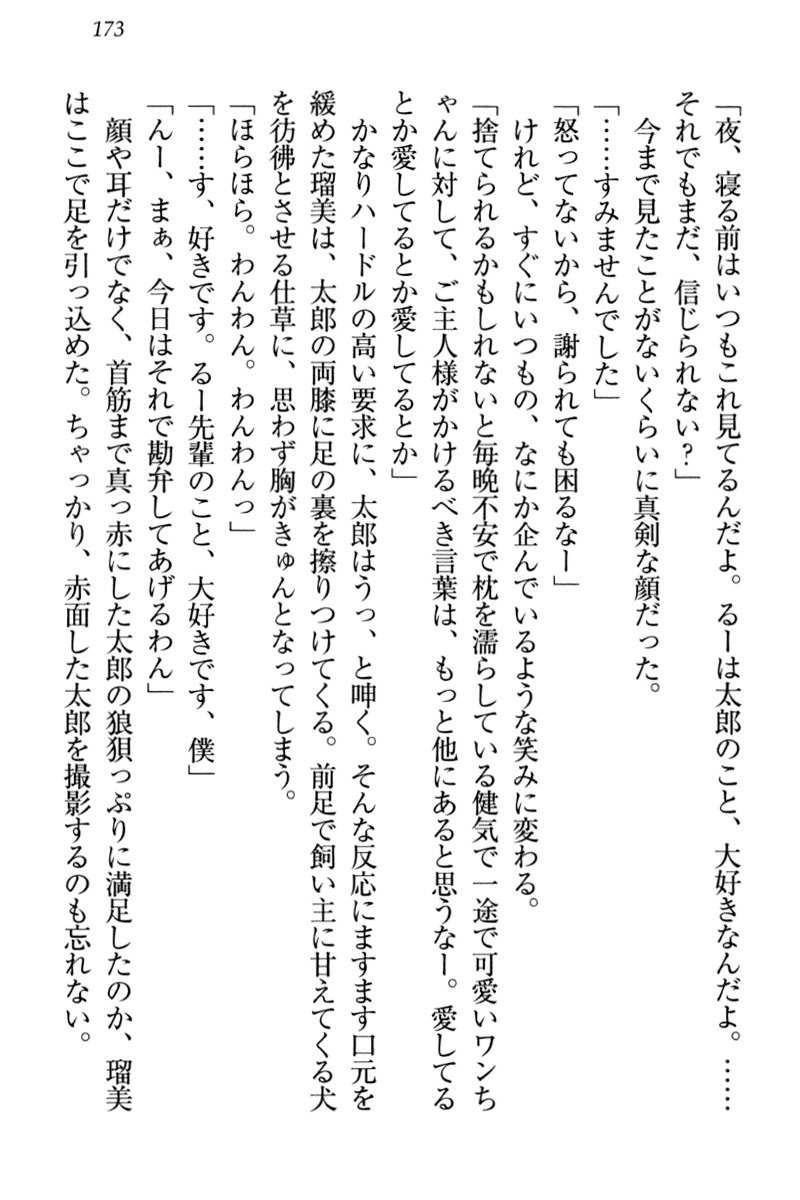 173
「夜、寝る前はいつもこれ見てるんだよ。るーは太郎のこと、大好きなんだよ。……
それでもまだ、信じられない？」
　今まで見たことがないくらいに真剣な顔だった。
「……すみませんでした」
「怒ってないから、謝られても困るなー」
　けれど、すぐにいつもの、なにか企んでいるような笑みに変わる。
「捨てられるかもしれないと毎晩不安で枕を濡らしている健気で一途で可愛いワンち
ゃんに対して、ご主人様がかけるべき言葉は、もっと他にあると思うなー。愛してる
とか愛してるとか愛してるとか」
　かなりハードルの高い要求に、太郎はうっ、と呻く。そんな反応にますます口元を
緩めた瑠美は、太郎の両膝に足の裏を擦りつけてくる。前足で飼い主に甘えてくる犬
を彷彿とさせる仕草に、思わず胸がきゅんとなってしまう。
「ほらほら。わんわん。わんわんっ」
「……す、好きです。るー先輩のこと、大好きです、僕」
「んー、まぁ、今日はそれで勘弁してあげるわん」
　顔や耳だけでなく、首筋まで真っ赤にした太郎の狼狽っぷりに満足したのか、瑠美
はここで足を引っ込めた。ちゃっかり、赤面した太郎を撮影するのも忘れない。